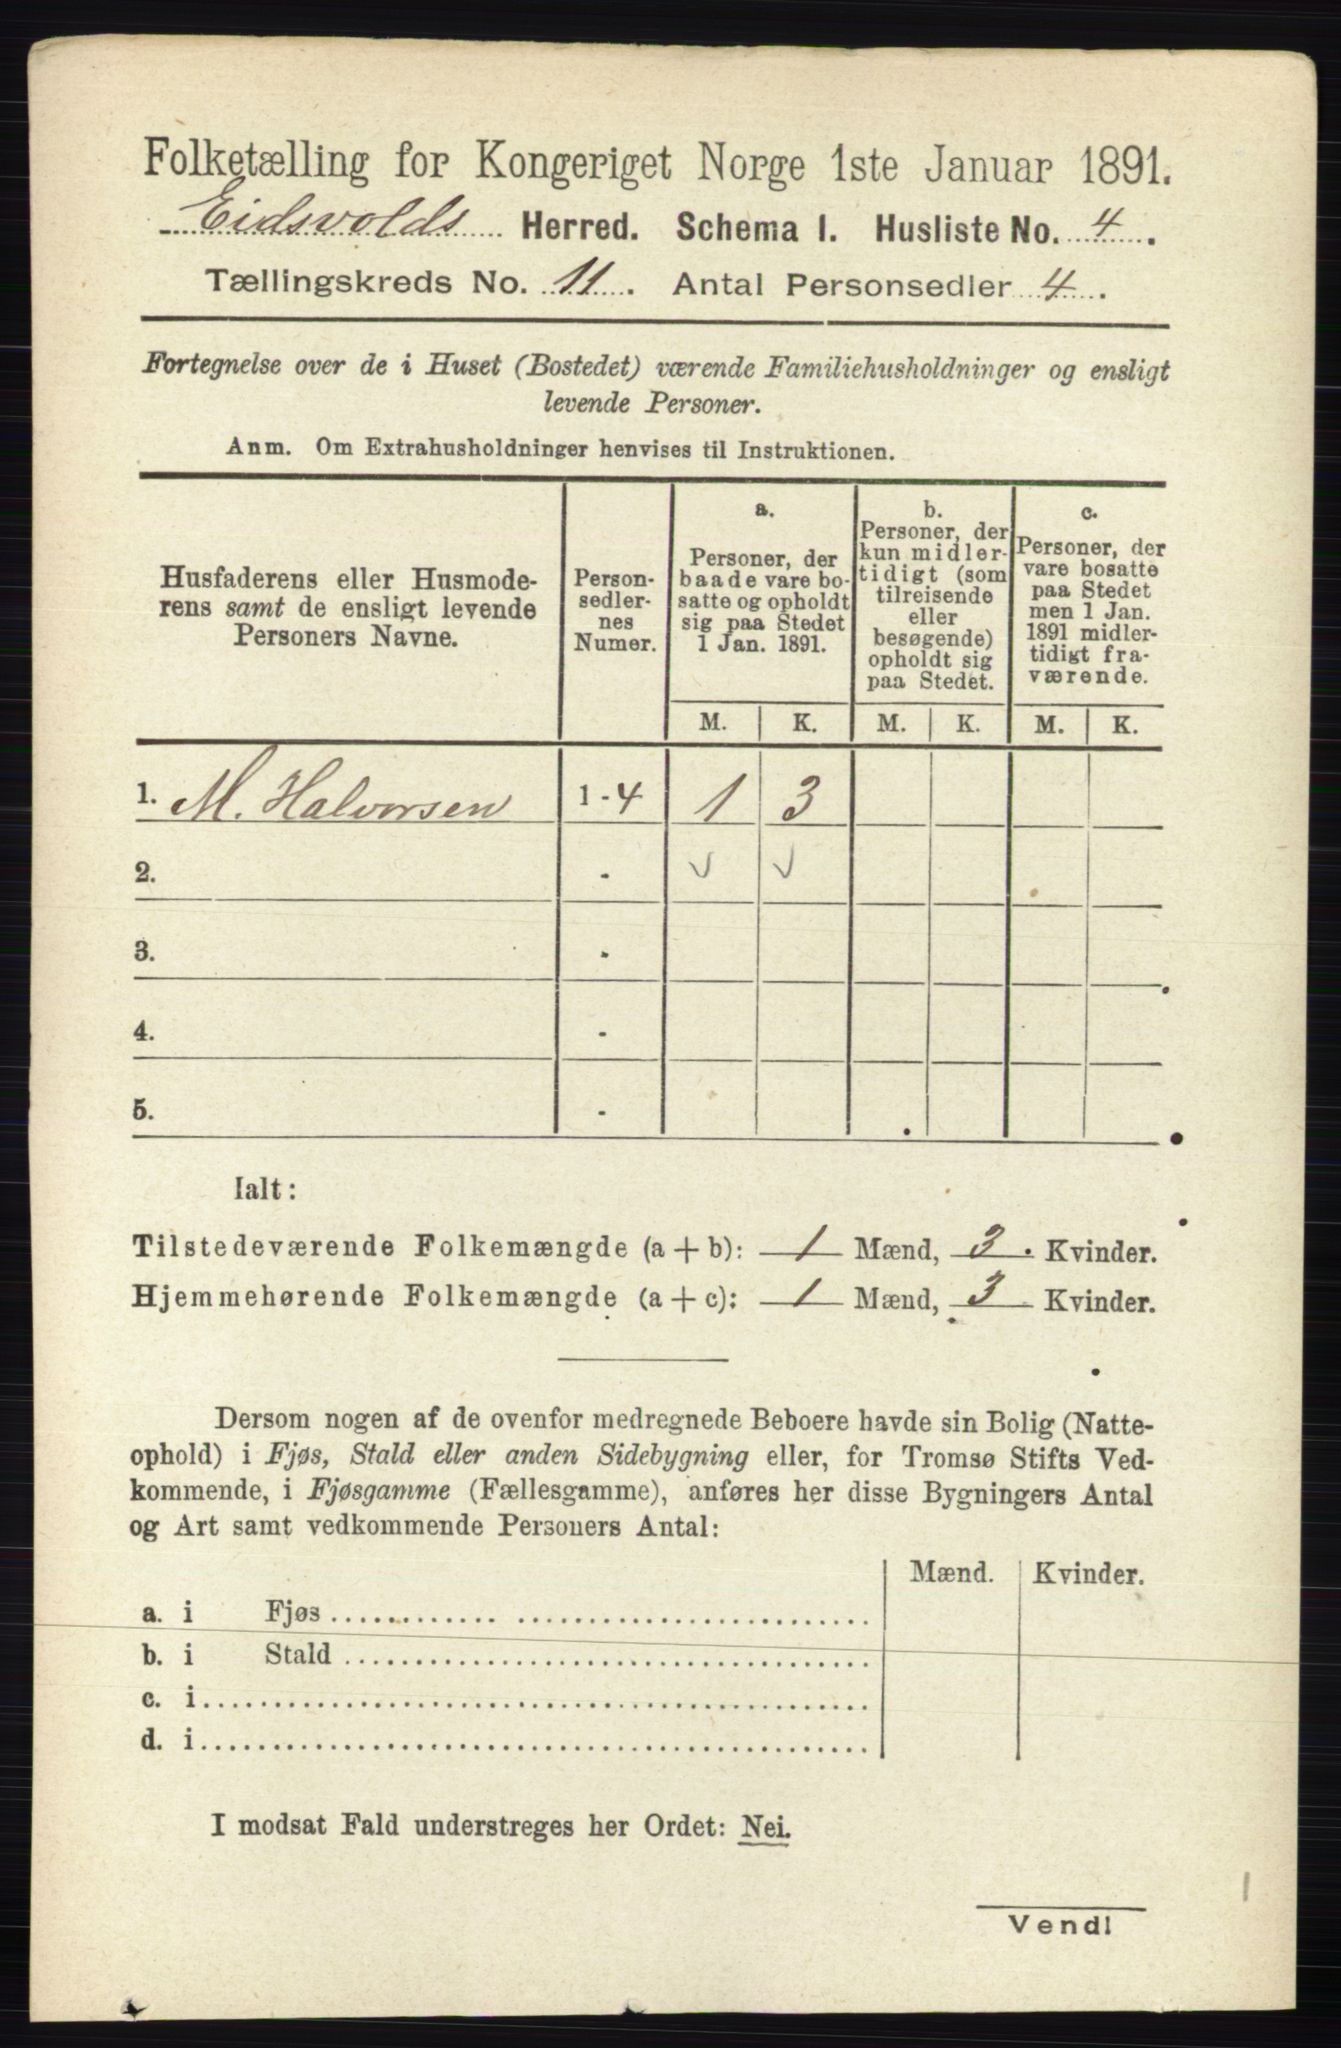 Folketælling for Kongeriget Norge 1ste Januar 1891.
Eidsvolds Herred. Schema I. Husliste No. 4.
Tællingskreds No. 11. Antal Personsedler 4.
Fortegnelse over de i Huset (Bostedet) værende Familiehusholdninger og ensligt
levende Personer.
Anm. Om Extrahusholdninger henvises til Instruktionen.
Husfaderens eller Husmode-
rens samt de ensligt levende
Personers Navne.
Person-
sedler-
nes
Numer.
a.
Personer, der
baade vare bo-
satte og opholdt
sig paa Stedet
1 Jan. 1891.
b.
Personer, der
kun midler-
tidigt (som
tilreisende
eller
besøgende)
opholdt sig
paa Stedet.
c.
Personer, der
vare bosatte
paa Stedet
men 1 Jan.
1891 midler-
tidigt fra-
værende.
M. K. M. K. M. K.
1. M. Halvorsen 1 - 4 1 3
2. - ✓ ✓
3. -
4. -
5. -
Ialt:
Tilstedeværende Folkemængde (a + b): 1 Mænd, 3. Kvinder.
Hjemmehørende Folkemængde (a + c): 1 Mænd, 3 Kvinder.
Dersom nogen af de ovenfor medregnede Beboere havde sin Bolig (Natte-
ophold) i Fjøs, Stald eller anden Sidebygning eller, for Tromsø Stifts Ved-
kommende, i Fjøsgamme (Fællesgamme), anføres her disse Bygningers Antal
og Art samt vedkommende Personers Antal:
Mænd. Kvinder.
a. i Fjøs
b. i Stald
c. i
d. i
I modsat Fald understreges her Ordet: Nei.
Vend!
1